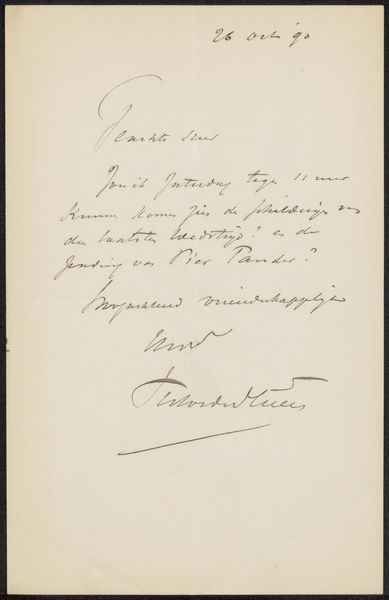 26 Oct '90
Geachte Heer
Zou ik Zaturdag tegen 11 uur
kunnen komen zien de schilderijen van
den laatsten Wedstrijd? en de
zending van Pier Pander?
Hoogachtend vriendschappelijk